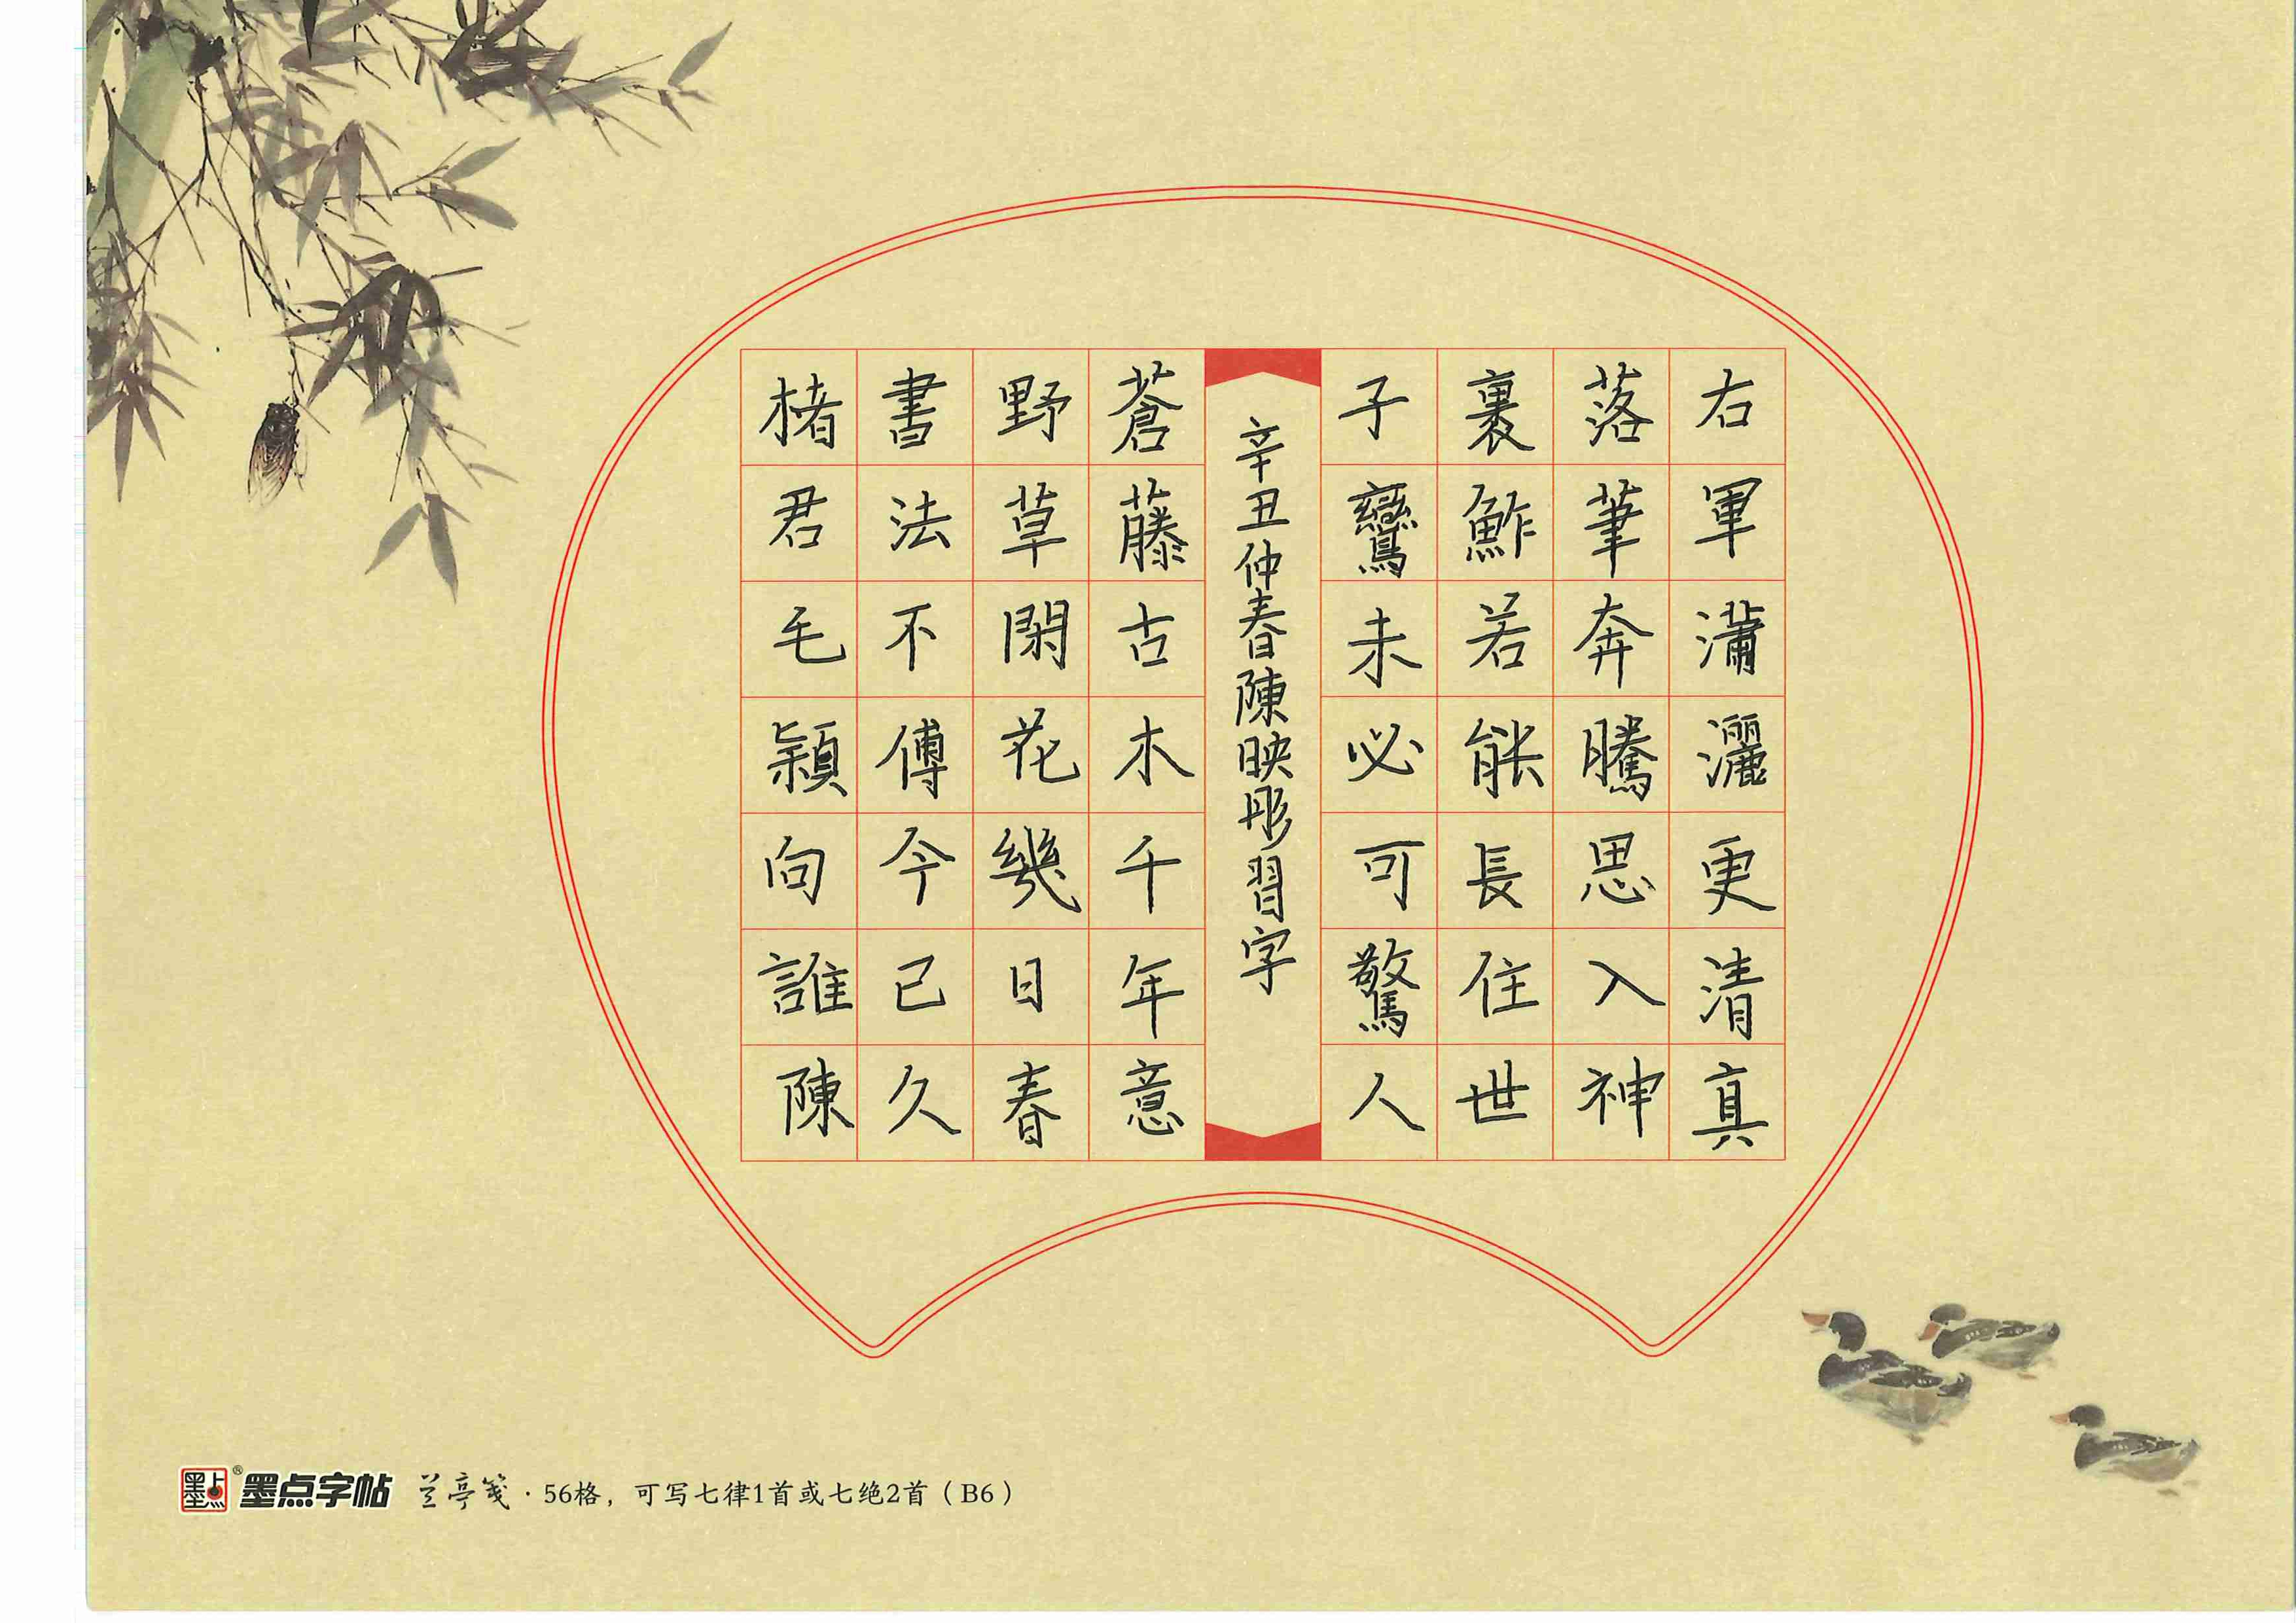 右軍瀟灑更清真
落筆奔騰思入神
裏鮓若能長住世
子鸞未必可驚人
辛丑仲春陳映彤習字
蒼藤古木千年意
野草閑花幾日春
書法不傳今已久
楮君毛穎向誰陳
墨点
®
墨点字帖 兰亭笺·56格，可写七律1首或七绝2首（B6）